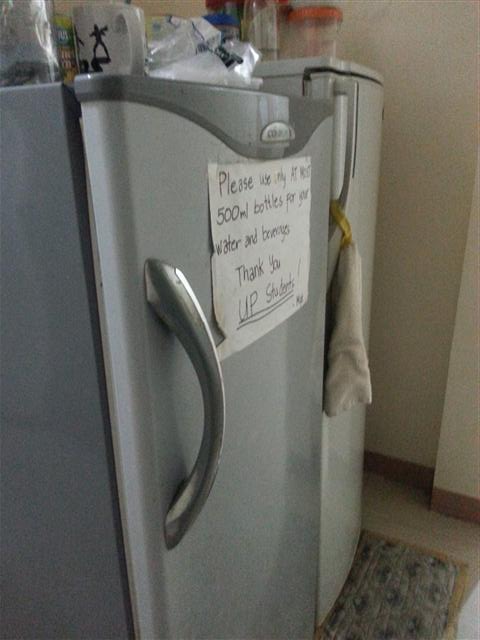 Please use only AT MOST
500ml bottles for your
water and beverages
Thank You
UP Students!